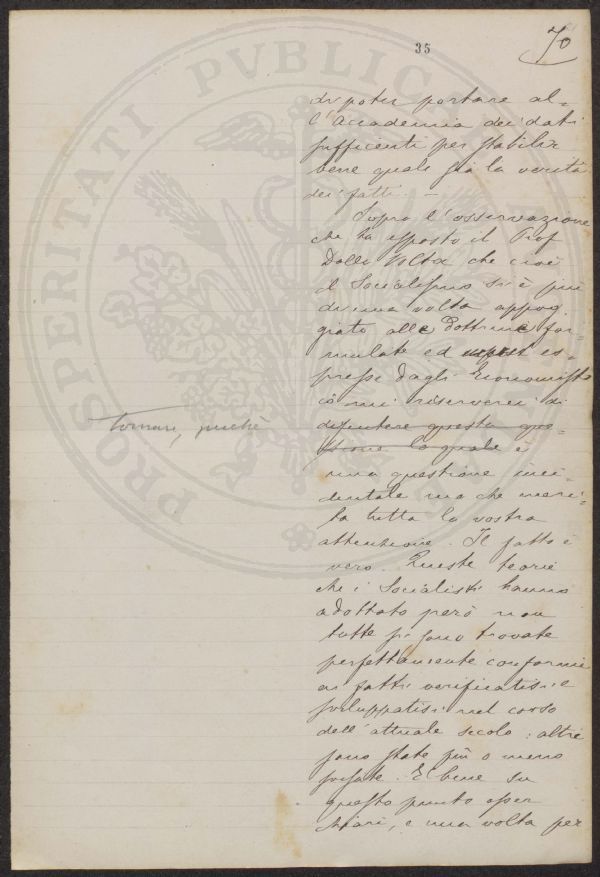 35
70
di poter portare al=
l'Accademia dei dati
sufficienti per stabilir
bene quale sia la verità
dei fatti. —
Sopra l'osservazione
che ha esposto il Prof
Dalla Volta che cioè
il Socialismo si è più
di una volta appog=
giato alle dottrine for=
mulate ed es=
pressi dagli Economisti
io mi riserverei di
discutere questa que=
stione la quale è
una questione inci=
dentale ma che meri=
ta tutta la vostra
attenzione. Il fatto è
vero. Queste teorie
che i Socialisti hanno
adottato però non
tutte si sono trovate
perfettamente conformi
ai fatti verificatisi e
sviluppatisi nel corso
dell'attuale secolo: altre
sono state più o meno
. E bene su
questo punto esser
chiari, e una volta per
tornare, purchè
PROSPERITATI PVBLICAE